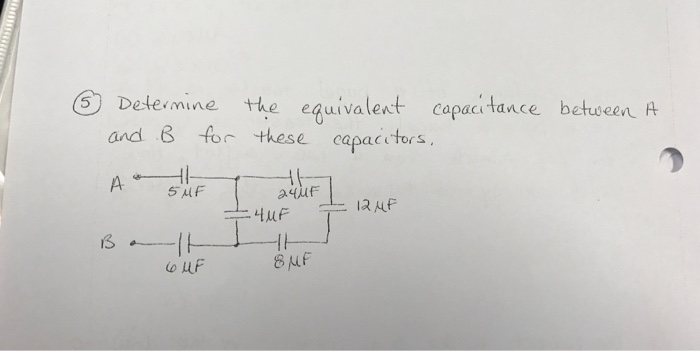 ⑤ Determine the equivalent capacitance between A
and B for these capacitors.
A 5 μF 24μF 12 μF
4μF
B 6 μF 8 μF